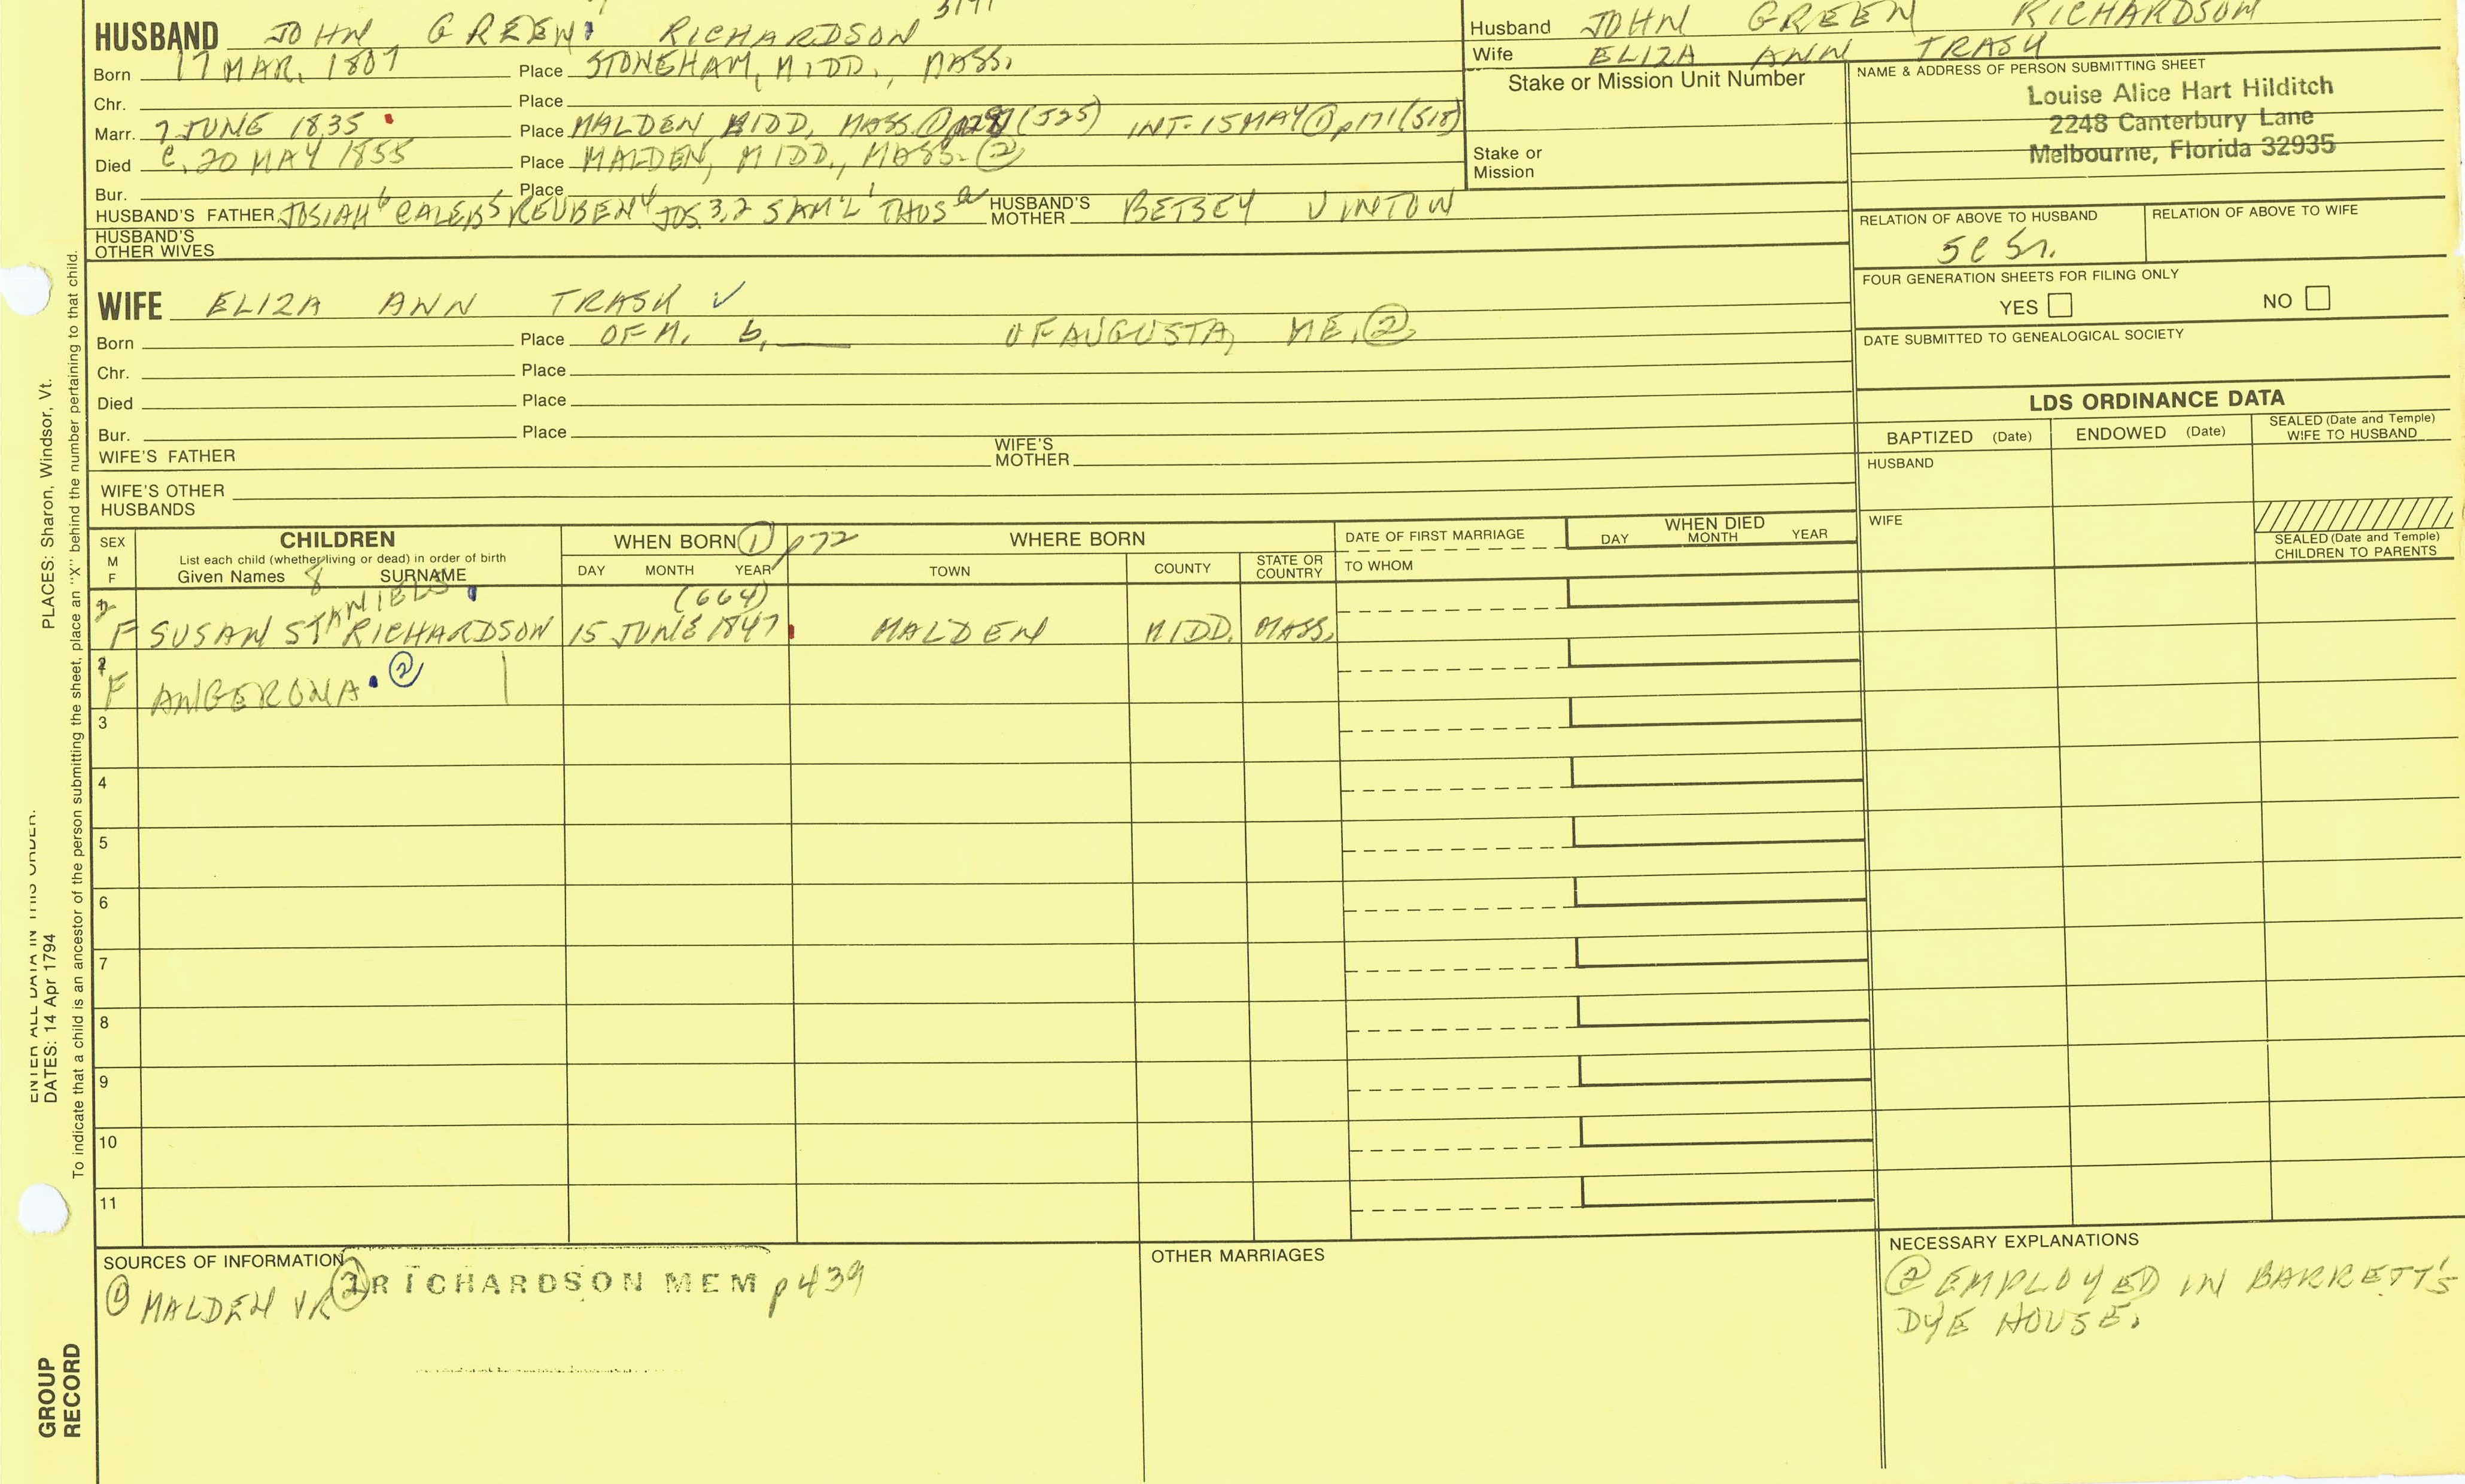 HUSBAND JOHN GREEN RICHARDSON
Born 17 MAR. 1807 Place STONEHAM, MIDD., MASS.
Chr. Place
Marr. 7 JUNE 1835 Place MALDEN, MIDD, MASS. ① (525) INT. 15 MAY ① p171 (518)
Died C. 20 MAY 1855 Place MALDEN, MIDD., MASS. ②
Bur. Place
HUSBAND'S FATHER JOSIAH 6 CALEB 5 REUBEN 4 JOS. 3,2 SAM'L 1 THOS a HUSBAND'S MOTHER BETSEY VINTON
HUSBAND'S OTHER WIVES
WIFE ELIZA ANN TRASK ✓
Born Place OF M. b. OF AUGUSTA, ME. ②
Chr. Place
Died Place
Bur. Place
WIFE'S FATHER WIFE'S MOTHER
WIFE'S OTHER HUSBANDS
Husband JOHN GREEN RICHARDSON
Wife ELIZA ANN TRASK
Stake or Mission Unit Number
Stake or
Mission
NAME & ADDRESS OF PERSON SUBMITTING SHEET
Louise Alice Hart Hilditch
2248 Canterbury Lane
Melbourne, Florida 32935
RELATION OF ABOVE TO HUSBAND RELATION OF ABOVE TO WIFE
FOUR GENERATION SHEETS FOR FILING ONLY
YES NO
DATE SUBMITTED TO GENEALOGICAL SOCIETY
LDS ORDINANCE DATA
BAPTIZED (Date) ENDOWED (Date) SEALED (Date and Temple) WIFE TO HUSBAND
HUSBAND
WIFE
SEALED (Date and Temple)
CHILDREN TO PARENTS
SEX
M
F
CHILDREN
List each child (whether living or dead) in order of birth
Given Names 8 SURNAME
WHEN BORN ① p72
DAY MONTH YEAR
WHERE BORN
TOWN COUNTY STATE OR COUNTRY
DATE OF FIRST MARRIAGE
TO WHOM
WHEN DIED
DAY MONTH YEAR
(664)
F SUSAN STANIELS RICHARDSON 15 JUNE 1847 MALDEN MIDD. MASS.
F ANGERONA ②
3
4
5
6
7
8
9
10
11
SOURCES OF INFORMATION
① MALDEN VR ② RICHARDSON MEM p439
OTHER MARRIAGES
NECESSARY EXPLANATIONS
② EMPLOYED IN BARRETT'S
DYE HOUSE.
PLACES: Sharon, Windsor, Vt.
ENTER ALL DATA IN THIS ORDER.
DATES: 14 Apr 1794
To indicate that a child is an ancestor of the person submitting the sheet, place an "X" behind the number pertaining to that child.
GROUP
RECORD